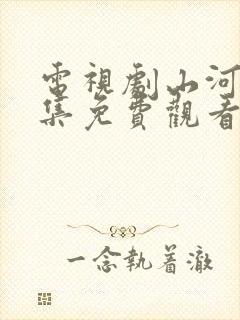 電視劇山河
集免費觀看
一念執着澈